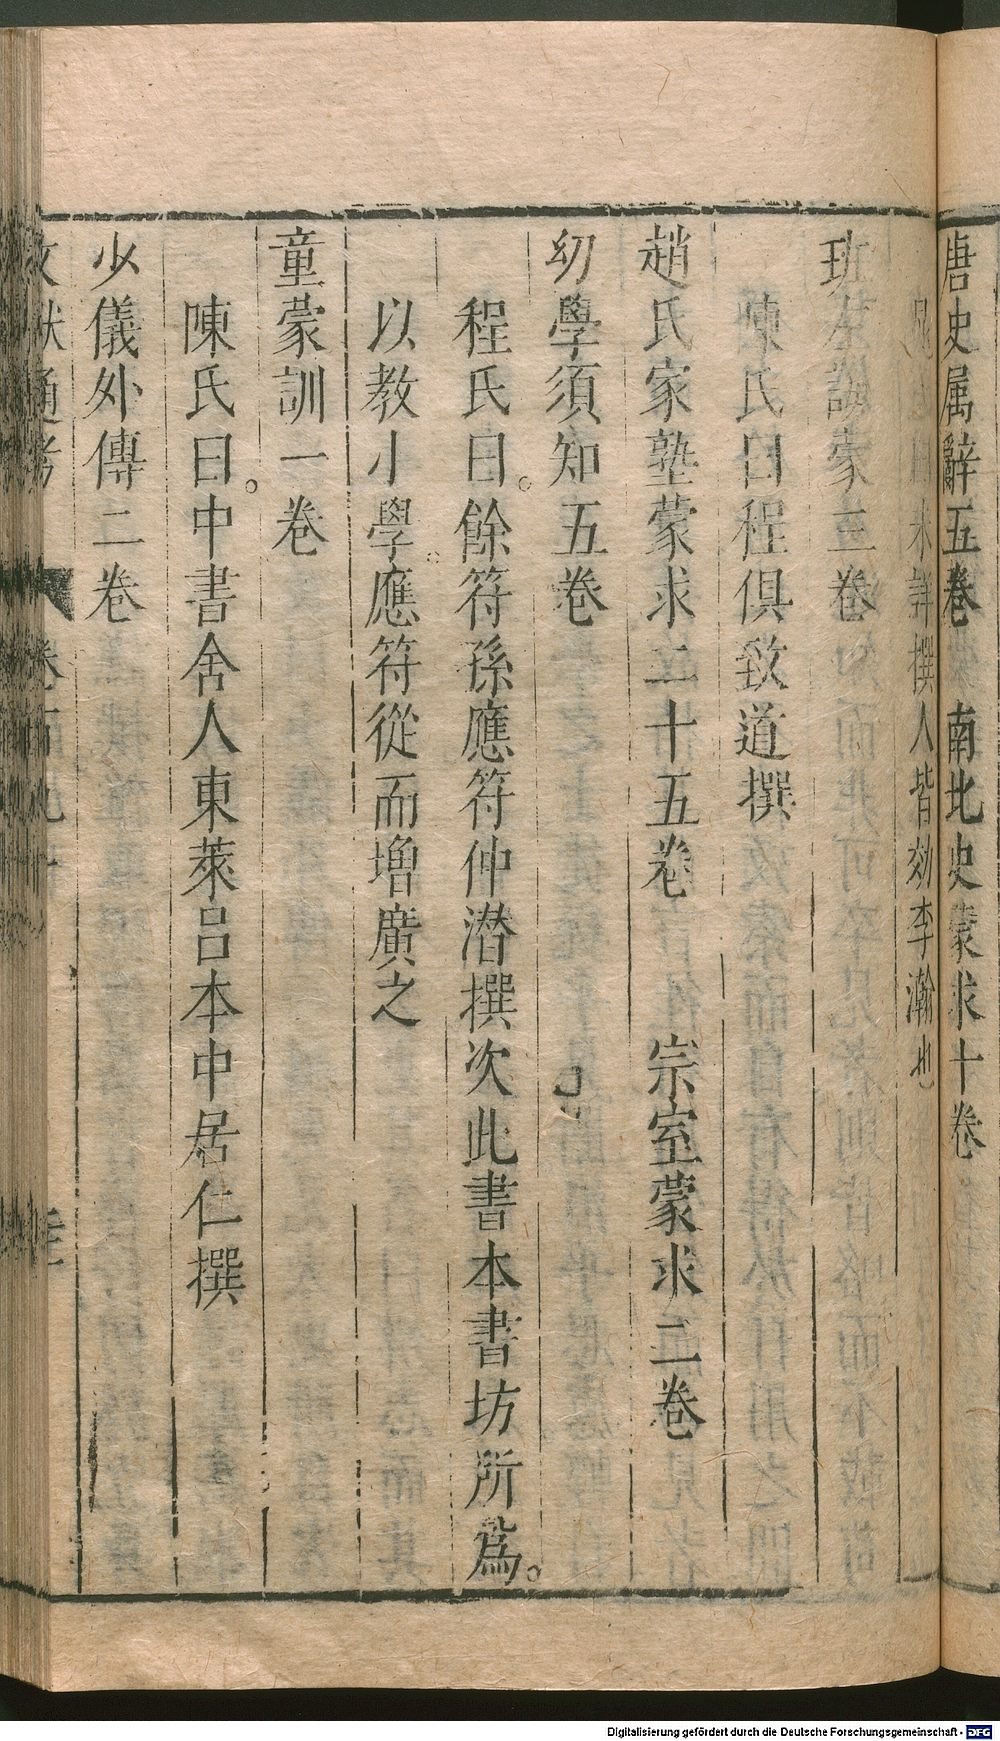 唐史属辭五卷　南北史蒙求十卷
晁氏曰未詳撰人皆効李瀚也
班左誨蒙三卷
陳氏曰程俱致道撰
趙氏家塾蒙求二十五卷　宗室蒙求二卷
幼學須知五卷
程氏曰餘符孫應符仲潜撰次此書本書坊所爲
以教小學應符從而增廣之
童蒙訓一卷
陳氏曰中書舍人東萊呂本中居仁撰
少儀外傳二卷
文獻通考　卷百九十
Digitalisierung gefördert durch die Deutsche Forschungsgemeinschaft - DFG